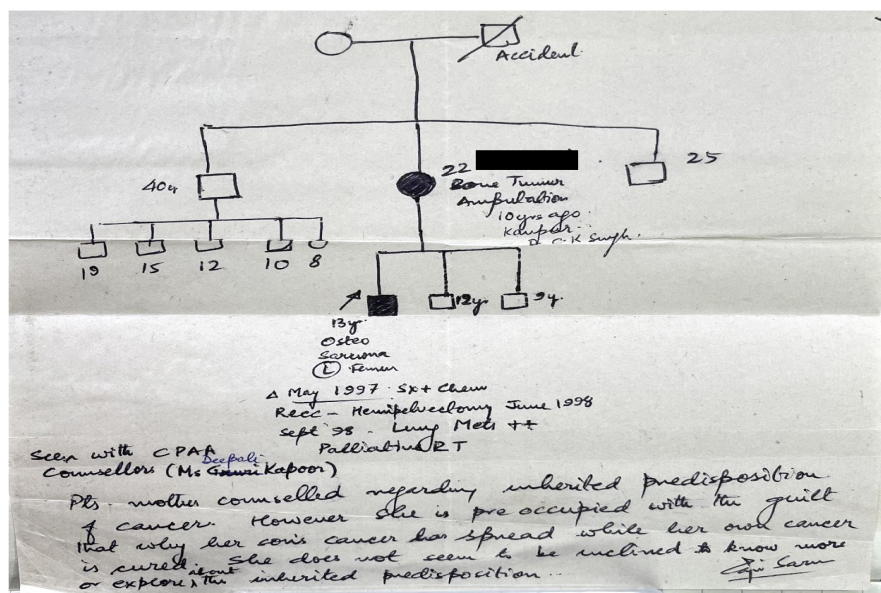 Accident
40y
22
Bone Tumor
Ambulation
10 yrs ago
Kanpur
Dr. C. K Singh.
25
19 15 12 10 8
13 yr. 12yr. 9 y.
Osteo
Sarcoma
(L) Femur
Δ May 1997 Sx + Chem
Recc - Hemipelvectomy June 1998
Sept '98 - Lung Mets ++
Palliative RT
Seen with CPAA
Deepali
Counsellors (Ms Kapoor)
Pts. mother counselled regarding inherited predisposition
of cancer. However she is pre occupied with the guilt
that why her son's cancer has spread while her own cancer
is cured. She does not seem to be inclined to know more
about
or explore the inherited predisposition..